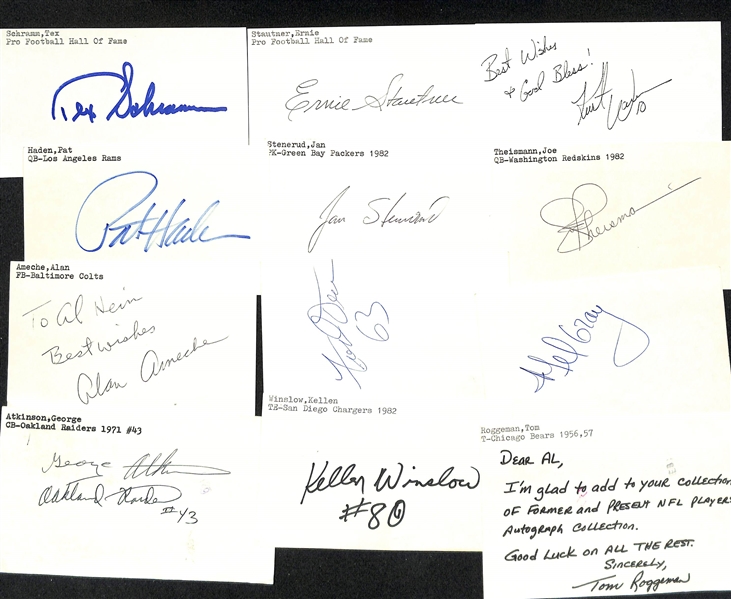 Schramm,Tex
Pro Football Hall Of Fame
Tex Schramm
Stautner,Ernie
Pro Football Hall of Fame
Ernie Stautner
Best Wishes
& God Bless!
Kurt
Haden,Pat
QB-Los Angeles Rams
Pat Haden
Stenerud,Jan
PK-Green Bay Packers 1982
Jan Stenerud
Theismann,Joe
QB-Washington Redskins 1982
J Theismann
Ameche,Alan
FB-Baltimore Colts
To Al Hein
Best wishes
Alan Ameche
63
Mel Gray
Atkinson,George
CB-Oakland Raiders 1971 #43
George Atkinson
Oakland Raider
#43
Winslow,Kellen
TE-San Diego Chargers 1982
Kellen Winslow
#80
Roggeman,Tom
T-Chicago Bears 1956,57
Dear AL,
I'm glad to add to your collection
of former and present NFL player
Autograph Collection.
Good Luck on ALL THE REST.
Sincerely,
Tom Roggeman